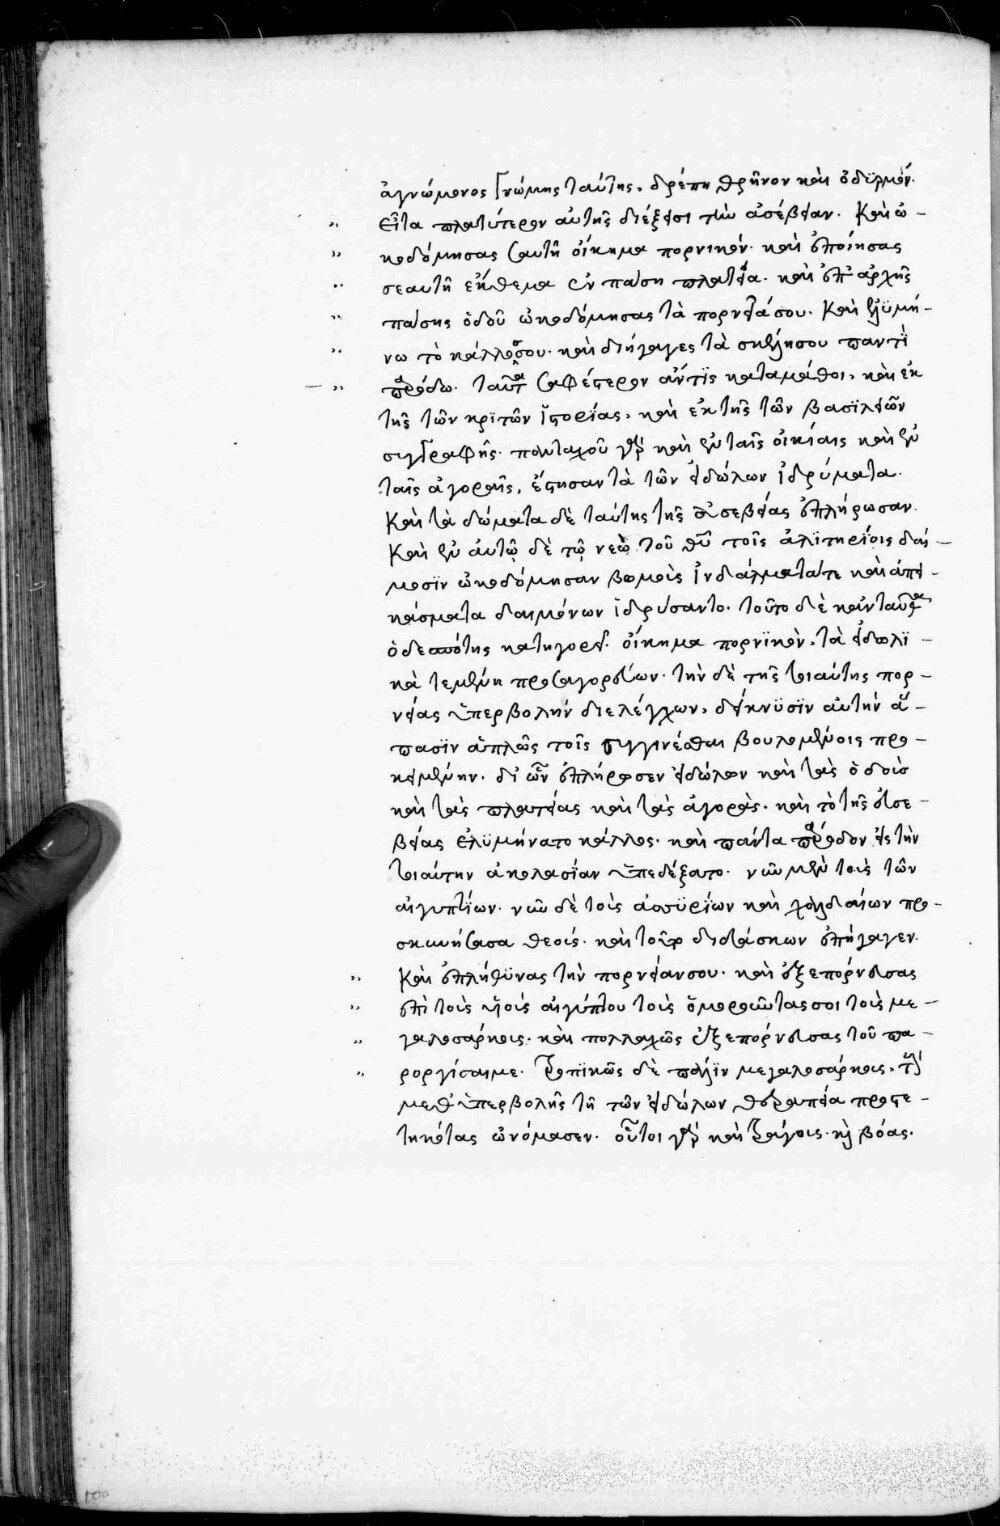 ἀγνώμονος γνώμης ταύτης, δρέπη θρῆνον καὶ ὀδϋρμόν.
Εἶτα πλατύτερον αὐτῆς διέξεισι τὴν ἀσέβειαν. Καὶ ὠ-
κοδόμησας ἑαυτῇ οἴκημα πορνικόν. καὶ ἐποίησας
σεαυτῇ ἔκθεμα ἐν πάσῃ πλατεία. καὶ ἐπ' ἀρχῆς
πάσης ὁδοῦ ὠκοδόμησας τὰ πορνεῖά σου. Καὶ ἐλυμή-
νω τὸ κάλλος σου. καὶ διήγαγες τὰ σκέλη σου παντὶ
παρόδω. ταῦτα σαφέστερον ἄν τις καταμάθοι, καὶ ἐκ
τῆς τῶν κριτῶν ἱστορίας, καὶ ἐκ τῆς τῶν βασιλειῶν
συγγραφῆς. πανταχοῦ γὰρ καὶ ἐν ταῖς οἰκίαις καὶ ἐν
ταῖς ἀγοραῖς, ἔστησαν τὰ τῶν εἰδώλων ἱδρύματα.
Καὶ τὰ δώματα δὲ ταύτης τῆς ἀσεβείας ἐπλήρωσαν.
Καὶ ἐν αὐτῷ δὲ τῷ νεῲ τοῦ θῦ τοῖς ἀλιτηρίοις δαί-
μοσιν ὠκοδόμησαν βωμοὺς ἰνδάλματά τε καὶ ἀπει-
κάσματα δαιμόνων ἱδρύσαντο. τοῦτο δὲ κἀνταῦθα
ὁ δεσπότης κατηγορεῖ. οἴκημα πορνικὸν, τὰ εἰδωλι-
κὰ τεμένη προσαγορεύων. τὴν δὲ τῆς τοιαύτης πορ-
νείας ὑπερβολὴν διελέγχων, δείκνυσιν αὐτὴν ἅ-
πασιν ἁπλῶς τοῖς συγγινέσθαι βουλομένοις προ-
κειμένην. δι' ὧν ἐπλήρωσεν εἰδώλων καὶ τὰς ὁδοὺς
καὶ τὰς πλατείας καὶ τὰς ἀγορὰς. καὶ τὸ τῆς εὐσε-
βείας ἐλυμήνατο κάλλος. καὶ πάντα πάροδον εἰς τὴν
τοιαύτην ἀκολασίαν ὑπεδέξατο. νῦν μὲν τοὺς τῶν
αἰγυπτίων. νῦν δὲ τοὺς ἀσσυρίων καὶ χαλδαίων προ-
σκυνήσασα θεούς. καὶ τοῦτο διδάσκων ἐπήγαγεν.
Καὶ ἐπλήθυνας τὴν πορνείαν σου. καὶ ἐξεπόρνευσας
ἐπὶ τοὺς υἱοὺς αἰγύπτου τοὺς ὁμοροῦντάς σοι τοὺς με-
γαλοσάρκους. καὶ πολλαχῶς ἐξεπόρνευσας τοῦ πα-
ροργίσαι με. τροπικῶς δὲ πάλιν μεγαλοσάρκους, τοὺς
μεθ' ὑπερβολῆς τῇ τῶν εἰδώλων θεραπεία προστε-
τηκότας ὠνόμασεν. οὗτοι γὰρ καὶ τράγους. κ βόας.